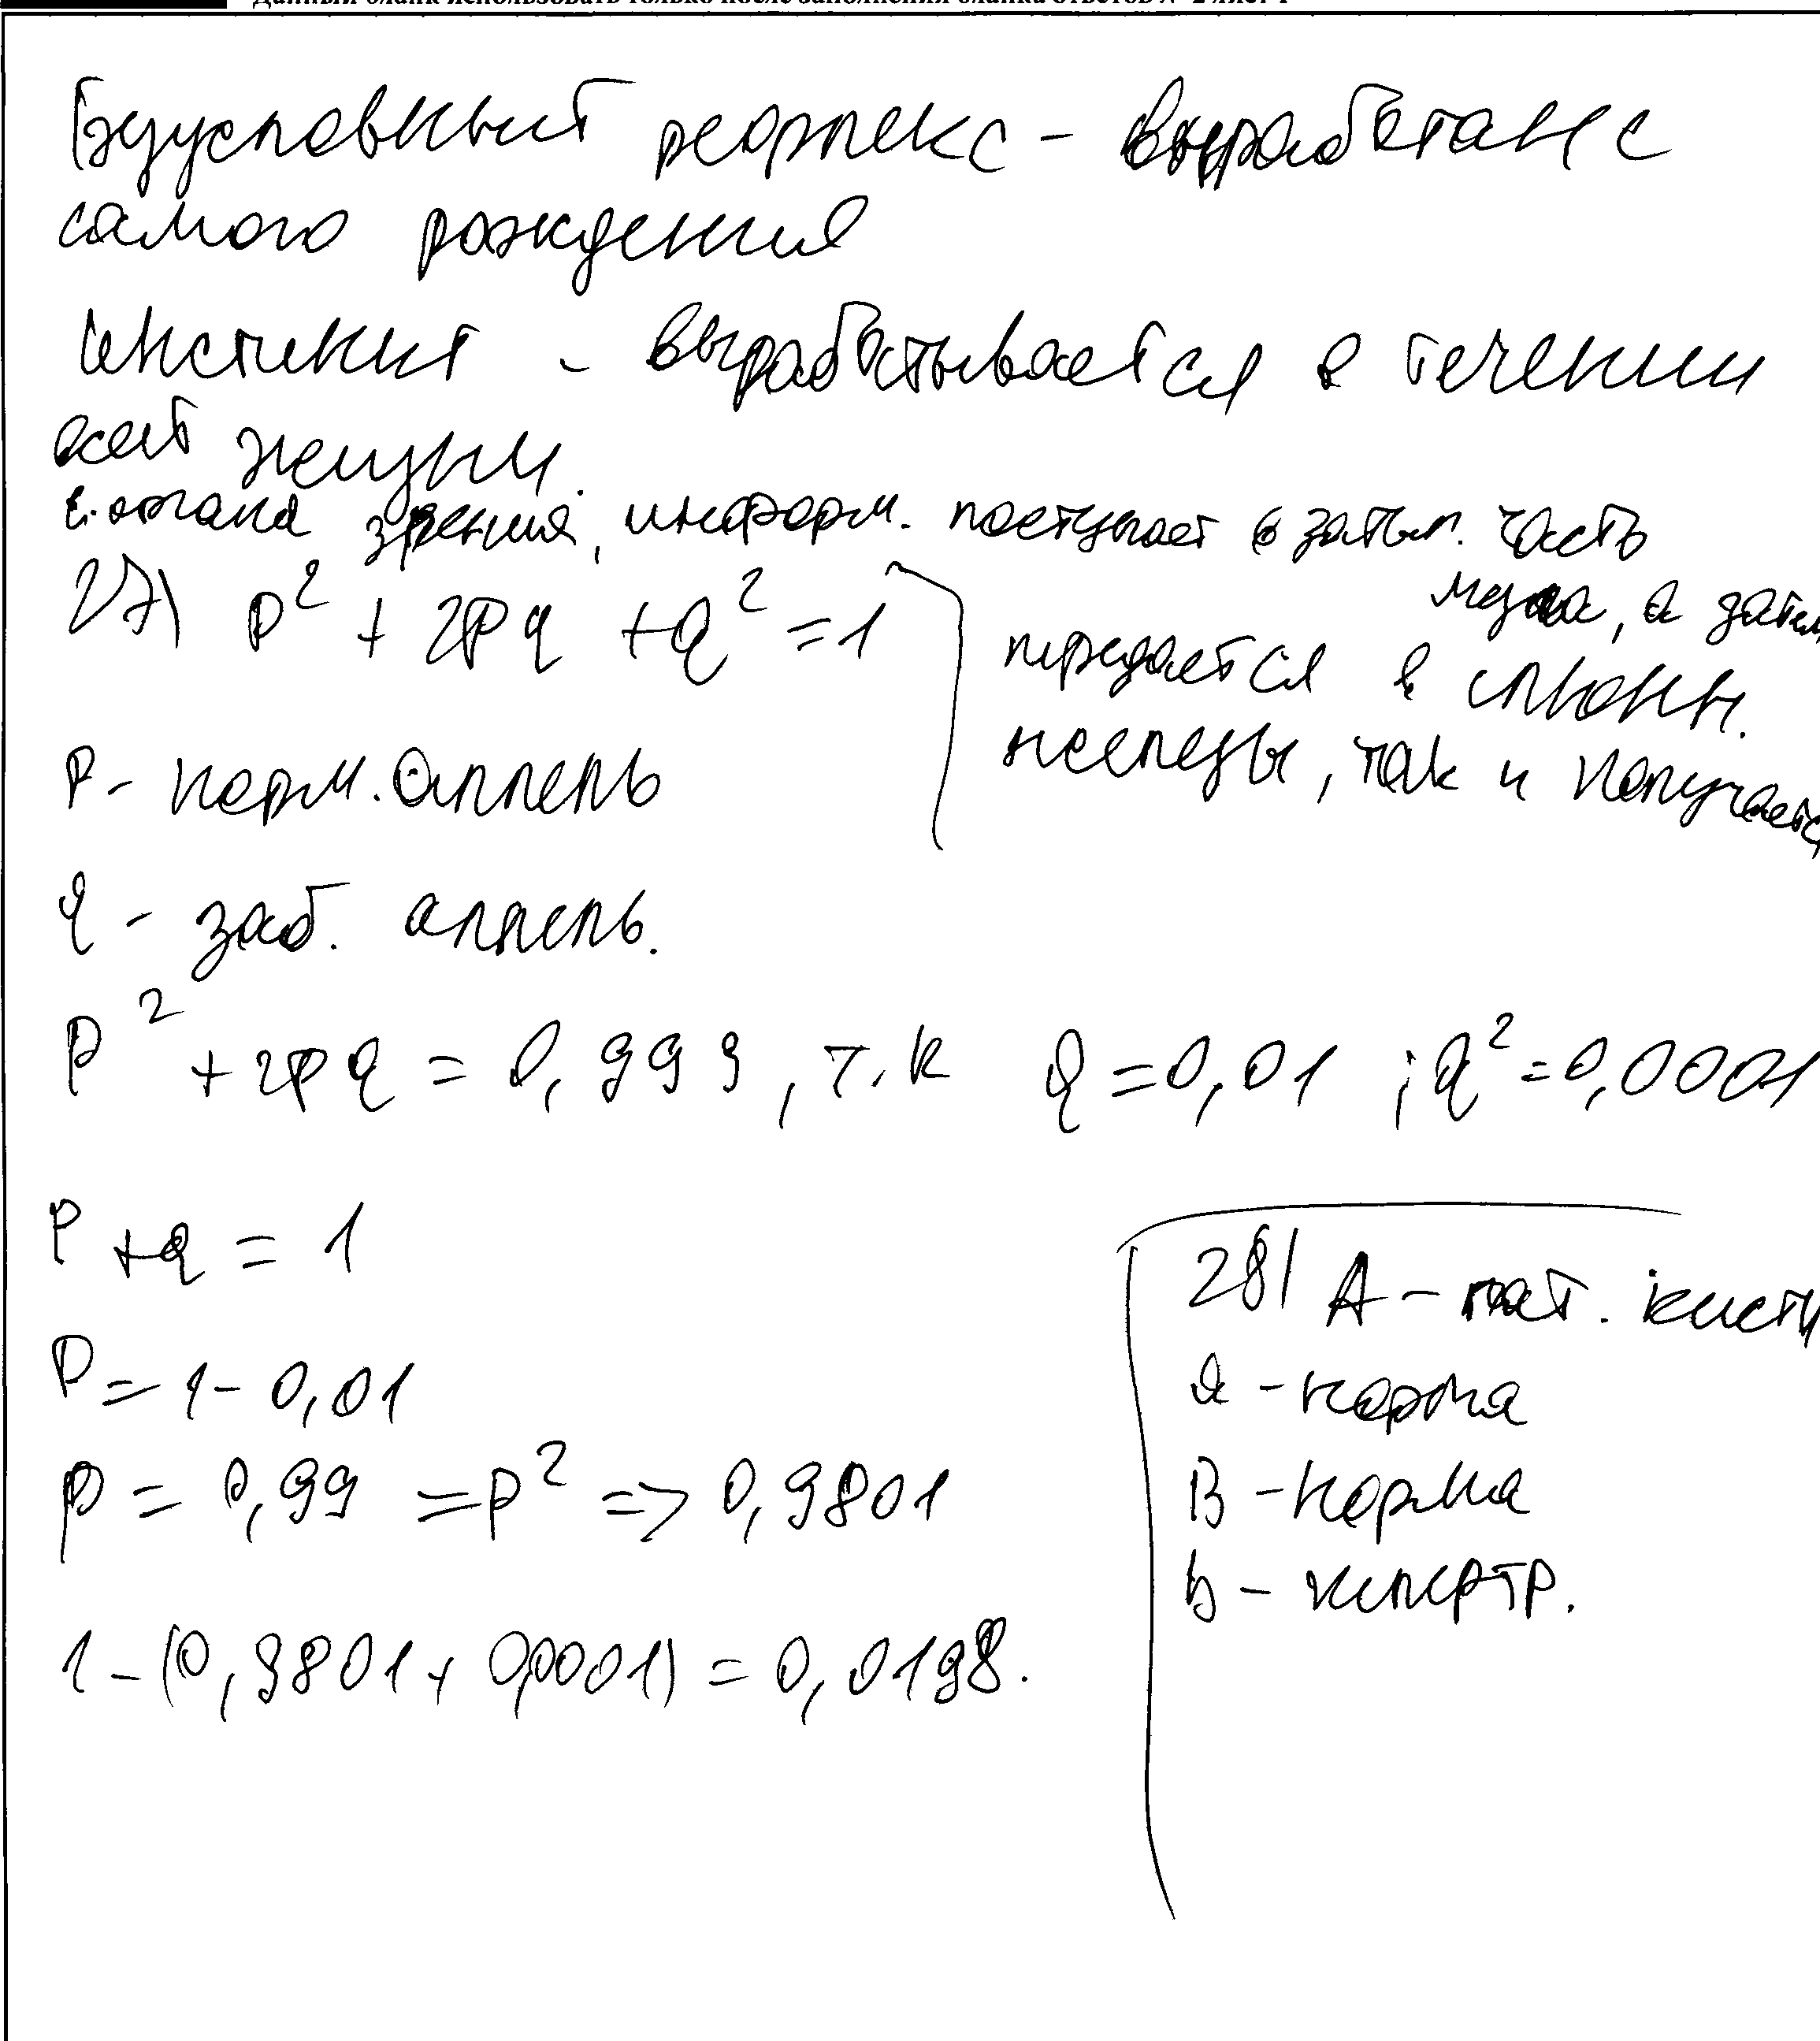 Данный бланк использовать только после заполнения бланка ответов № 2 лист 1
Безусловный рефлекс - выработан с
самого рождения
инстинкт - вырабатывается в течении
всей жизни.
с органа зрения, информ. поступает в затыл. часть
мозга, а затем
передается в слюнн.
железы, так и получаетс
27) p² + 2pq + q² = 1
p - норм. аллель
q - заб. аллель.
p² + 2pq = 0,999, т.к q = 0,01 ; q² = 0,0001
p + q = 1
p = 1 - 0,01
p = 0,99 = p² => 0,9801
1 - (0,9801 + 0,0001) = 0,0198.
28) A - пат. кисти
a - норма
B - норма
b - гипертр.